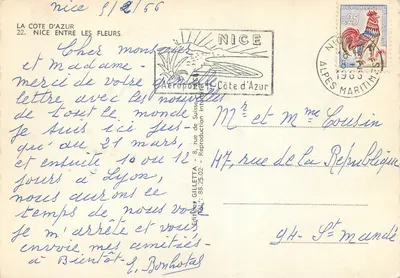 nice 8/2/66
LA COTE D'AZUR
22. NICE ENTRE LES FLEURS
Cher monsieur
et Madame -
merci de votre gentille
lettre avec les nouvelles
de tout le monde
je suis ici jus-
qu'au 21 mars,
et ensuite 10 ou 12
jours à Lyon,
nous aurons le
temps de nous voir
je m'arrête et vous
envoie mes amitiés -
à Bientôt - E. Bonhotal
NICE
Aéroport Côte d'Azur
GILLETTA
88.25.02
8, rue de
Reproduction
NICE
1966
ALPES MARITIMES
Mr et Mme Cousin
47, rue de la République
94 - St Mandé